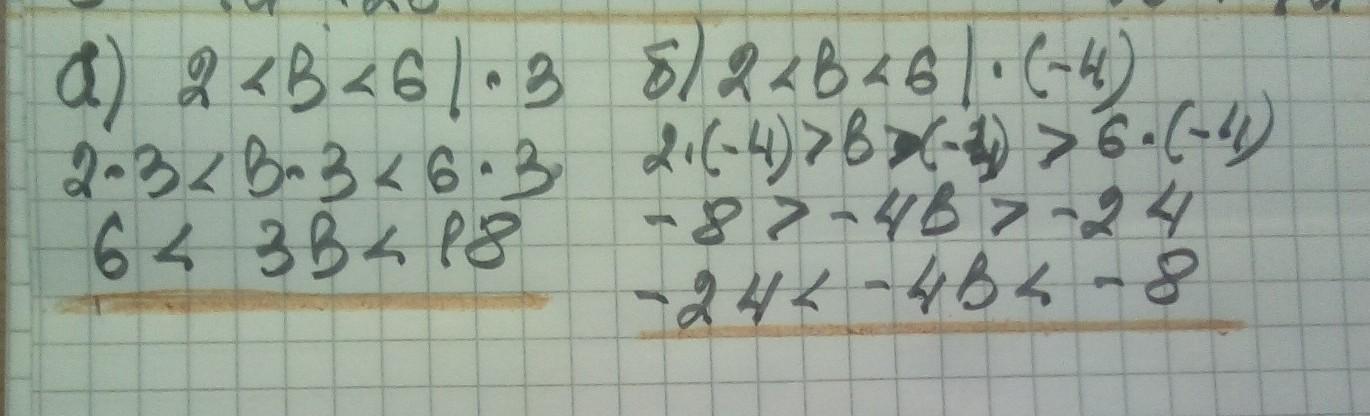 а) 2 < В < 6 | · 3
2 · 3 < В · 3 < 6 · 3
6 < 3В < 18
б) 2 < В < 6 | · (-4)
2 · (-4) > В > (-4) > 6 · (-4)
-8 > -4В > -24
-24 < -4В < -8